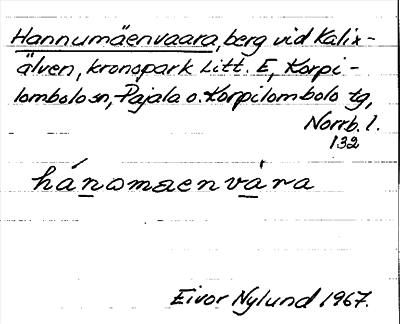 Hannumäenvaara, berg vid Kalix-
älven, kronopark Litt. E, Korpi-
lombolo sn, Pajala o. Korpilombolo tg,
Norrb. l.
132
hánomaenvára
Eivor Nylund 1967.